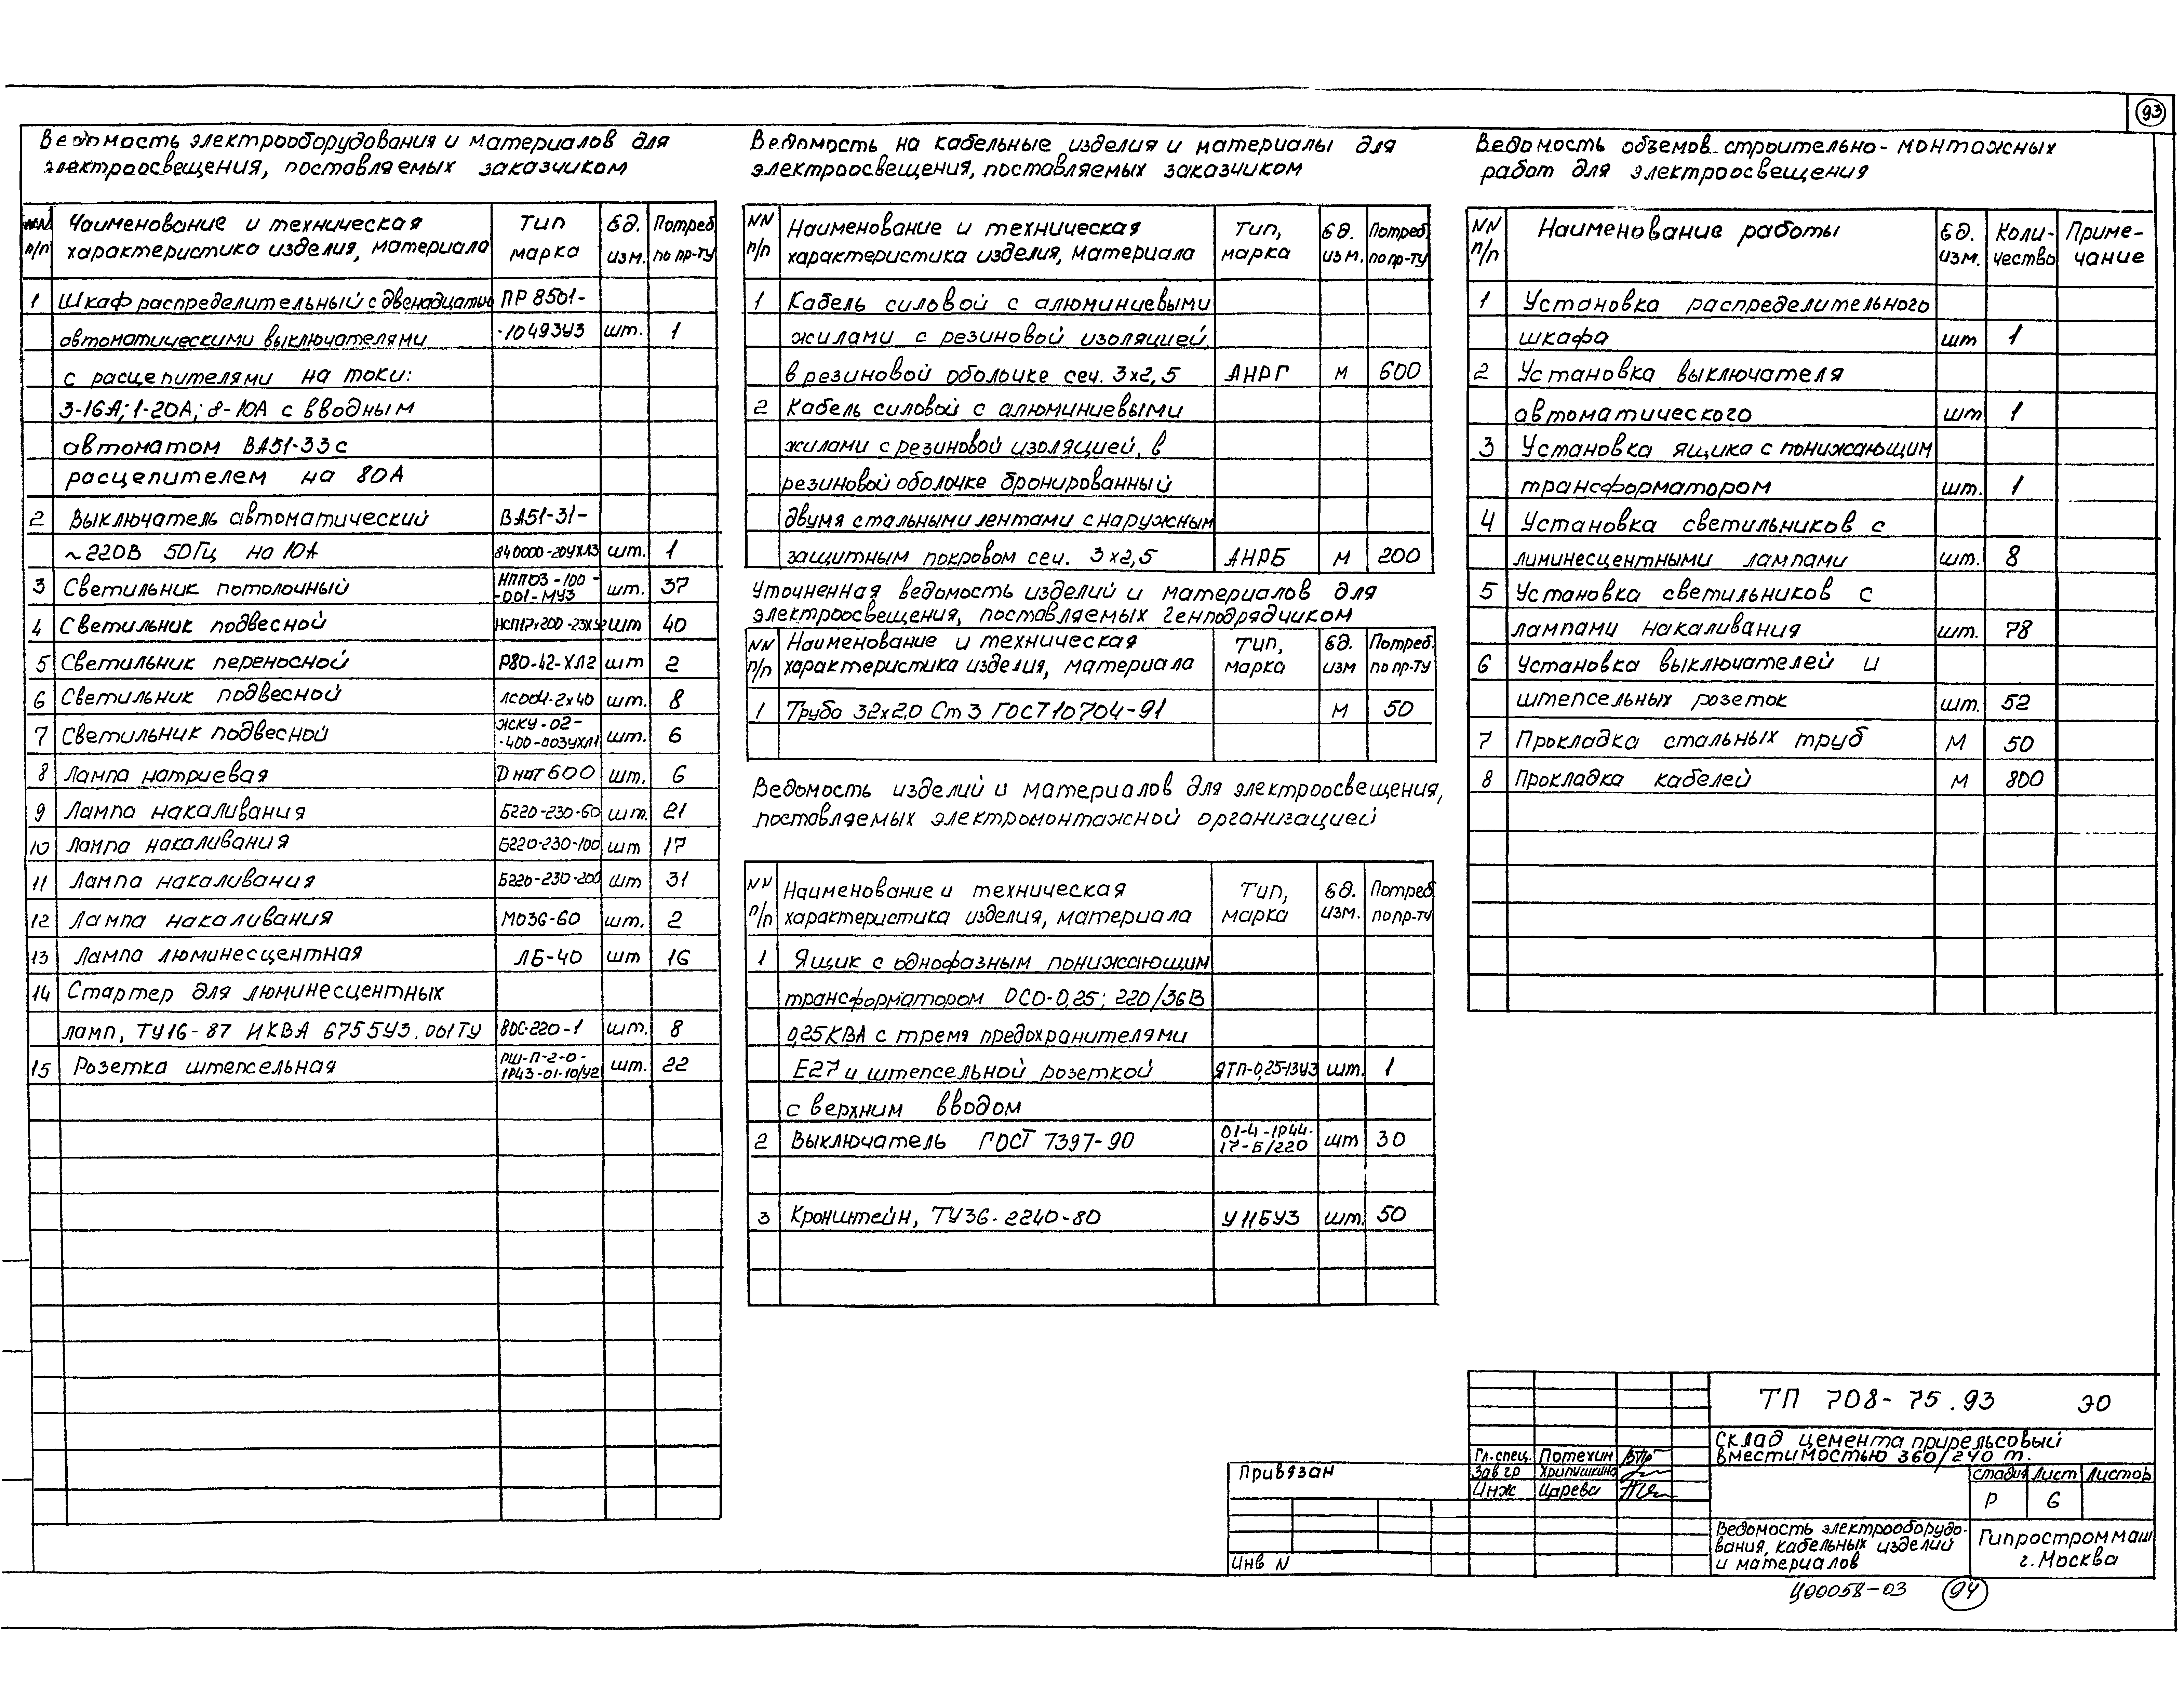 93
Ведомость электрооборудования и материалов для
электроосвещения, поставляемых заказчиком
NN п/п Наименование и техническая характеристика изделия, материала Тип марка Ед. изм. Потреб. по пр-ту
1 Шкаф распределительный с двенадцатью ПР 8501-
автоматическими выключателями -1049ЗУЗ шт. 1
с расцепителями на токи:
3-16А; 1-20А; 8-10А с вводным
автоматом ВА51-33 с
расцепителем на 80А
2 Выключатель автоматический ВА51-31-
~220В 50Гц на 10А 840000-20УХЛ3 шт. 1
3 Светильник потолочный НПП03-100-
-001-МУЗ шт. 37
4 Светильник подвесной шт 40
5 Светильник переносной Р80-42-ХЛ2 шт 2
6 Светильник подвесной ЛСО04-2х40 шт. 8
7 Светильник подвесной ЖСКУ-02-
-400-003УХЛ1 шт. 6
8 Лампа натриевая Днат 600 шт. 6
9 Лампа накаливания Б220-230-60 шт. 21
10 Лампа накаливания Б220-230-100 шт 17
11 Лампа накаливания Б220-230-200 шт 31
12 Лампа накаливания МО36-60 шт. 2
13 Лампа люминесцентная ЛБ-40 шт 16
14 Стартер для люминесцентных
ламп, ТУ16-87 ИКВА 675543.001ТУ 80С-220-1 шт. 8
15 Розетка штепсельная РШ-П-2-0-
1Р43-01-10/У2 шт. 22
Ведомость на кабельные изделия и материалы для
электроосвещения, поставляемых заказчиком
NN п/п Наименование и техническая характеристика изделия, материала Тип, марка Ед. изм. Потреб. по пр-ту
1 Кабель силовой с алюминиевыми
жилами с резиновой изоляцией,
в резиновой оболочке сеч. 3х2,5 АНРГ М 600
2 Кабель силовой с алюминиевыми
жилами с резиновой изоляцией, в
резиновой оболочке бронированный
двумя стальными лентами с наружным
защитным покровом сеч. 3х2,5 АНРБ М 200
Уточненная ведомость изделий и материалов для
электроосвещения, поставляемых генподрядчиком
NN п/п Наименование и техническая характеристика изделия, материала Тип, марка Ед. изм Потреб. по пр-ту
1 Труба 32х2,0 Ст 3 ГОСТ 10704-91 М 50
Ведомость изделий и материалов для электроосвещения,
поставляемых электромонтажной организацией
NN п/п Наименование и техническая характеристика изделия, материала Тип, марка Ед. изм. Потреб. по пр-ту
1 Ящик с однофазным понижающим
трансформатором ОСО-0,25; 220/36В
0,25КВА с тремя предохранителями
Е27 и штепсельной розеткой ЯТП-0,25-13УЗ шт. 1
с верхним вводом
2 Выключатель ГОСТ 7397-90 01-4-1Р44-
17-Б/220 шт 30
3 Кронштейн, ТУ36-2240-80 У11БУЗ шт. 50
Ведомость объемов строительно-монтажных
работ для электроосвещения
NN п/п Наименование работы Ед. изм. Коли-чество Приме-чание
1 Установка распределительного
шкафа шт 1
2 Установка выключателя
автоматического шт 1
3 Установка ящика с понижающим
трансформатором шт. 1
4 Установка светильников с
лиминесцентными лампами шт. 8
5 Установка светильников с
лампами накаливания шт. 78
6 Установка выключателей и
штепсельных розеток шт. 52
7 Прокладка стальных труб М 50
8 Прокладка кабелей М 800
ТП 708-75.93 ЭО
Склад цемента прирельсовый
вместимостью 360/240 т.
Гл.спец. Потехин
Зав гр Хрипушкина
Инж Царева
Привязан
Инв N
стадия Лист Листов
Р 6
Ведомость электрооборудо-
вания, кабельных изделий
и материалов
Гипростроммаш
г. Москва
Ц00058-03 94